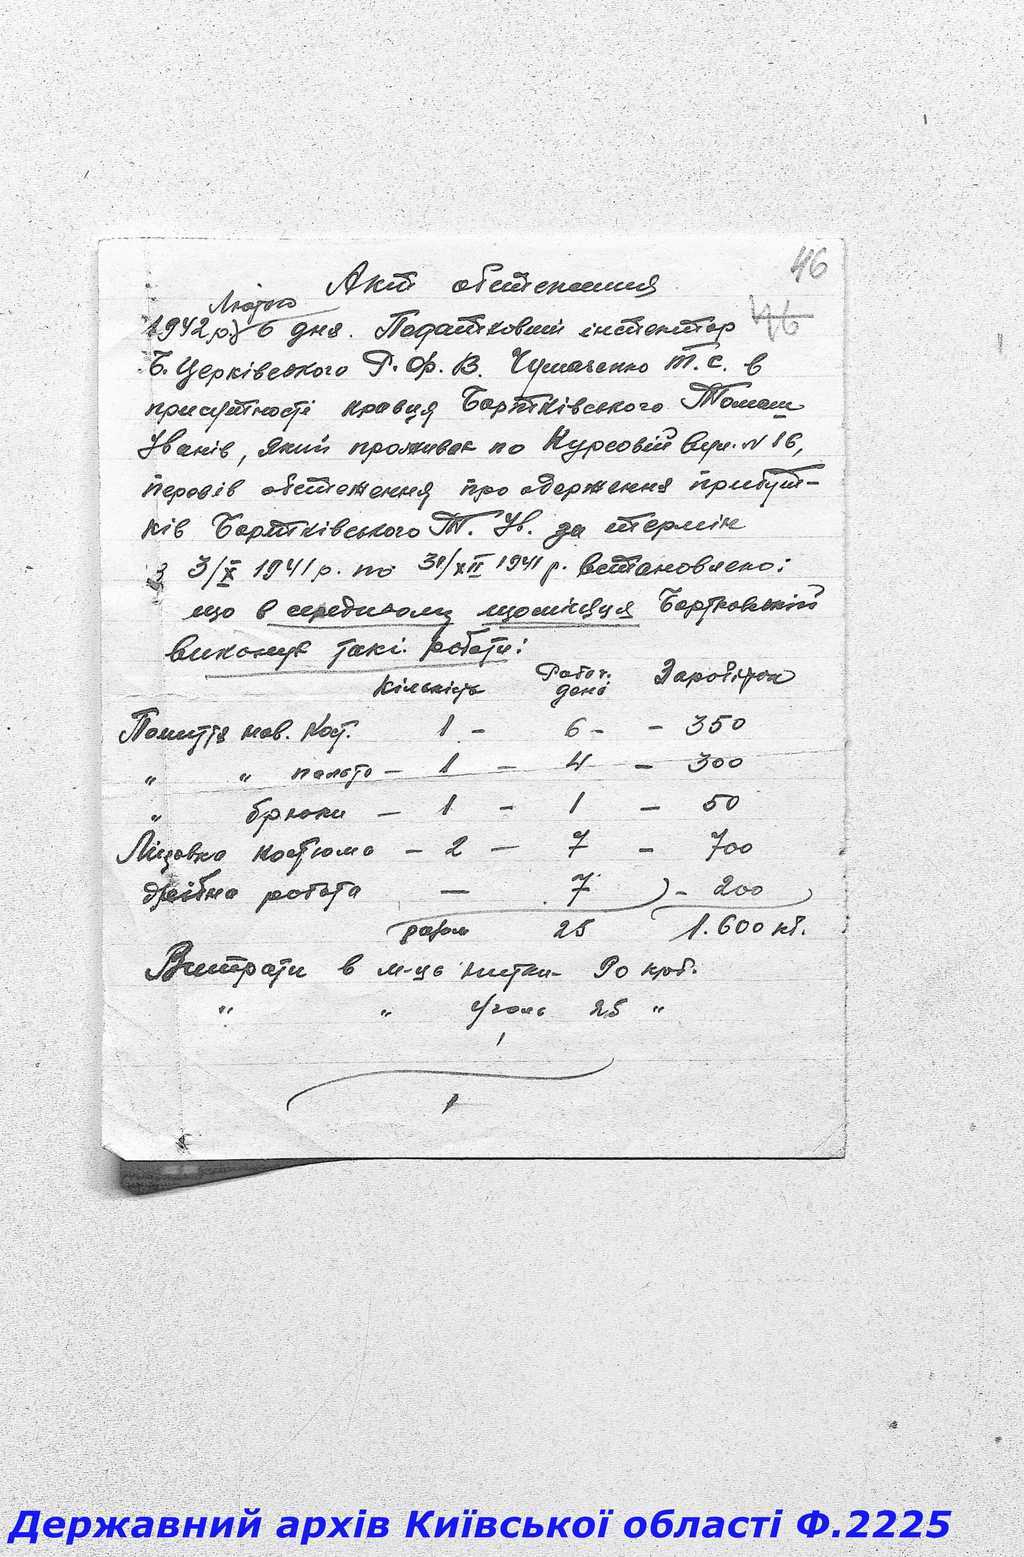 46
Акт обстеження
46
Лютого
1942 р. 6 дня. Податковий інспектор
Б. Церківського Р. Ф. В. Чумаченко Т. С. в
присутності кравця Бортківського Томаш
Іванів, який проживає по Курсовій вул. N 16,
перевів обстеження про одерження прибут-
ків Бортківського Т. Ів. за термін
з 3/X 1941 р. по 31/XII 1941 р. встановлено:
що в середньому щомісяця Бортковський
виконув такі роботи:
Кількість Робоч. дені Заробіток
Пошиття нов. кост. 1 - 6 - - 350
" " пальто - 1 - 4 - 300
" брюки - 1 - 1 - 50
Ліцовка костюма - 2 - 7 - 700
дрібна робота - 7 - 200
разом 25 1.600 кб.
Витрати в м-ць нитки - 90 крб.
" " Уголь 25 "
Державний архів Київської області Ф.2225